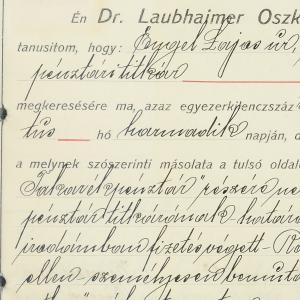 Én Dr. Laubhajmer Oszk
tanusitom, hogy: Engel Lajos úr,
pénztári titkár
megkeresésére ma, azaz egyezerkilenczszáz
tus hó harmadik napján, d
a melynek szószerinti másolata a tulsó oldal
Takarékpénztár" részére
pénztár titkárának határ
irodámban fizetés végett
ellen személyesen bemuta